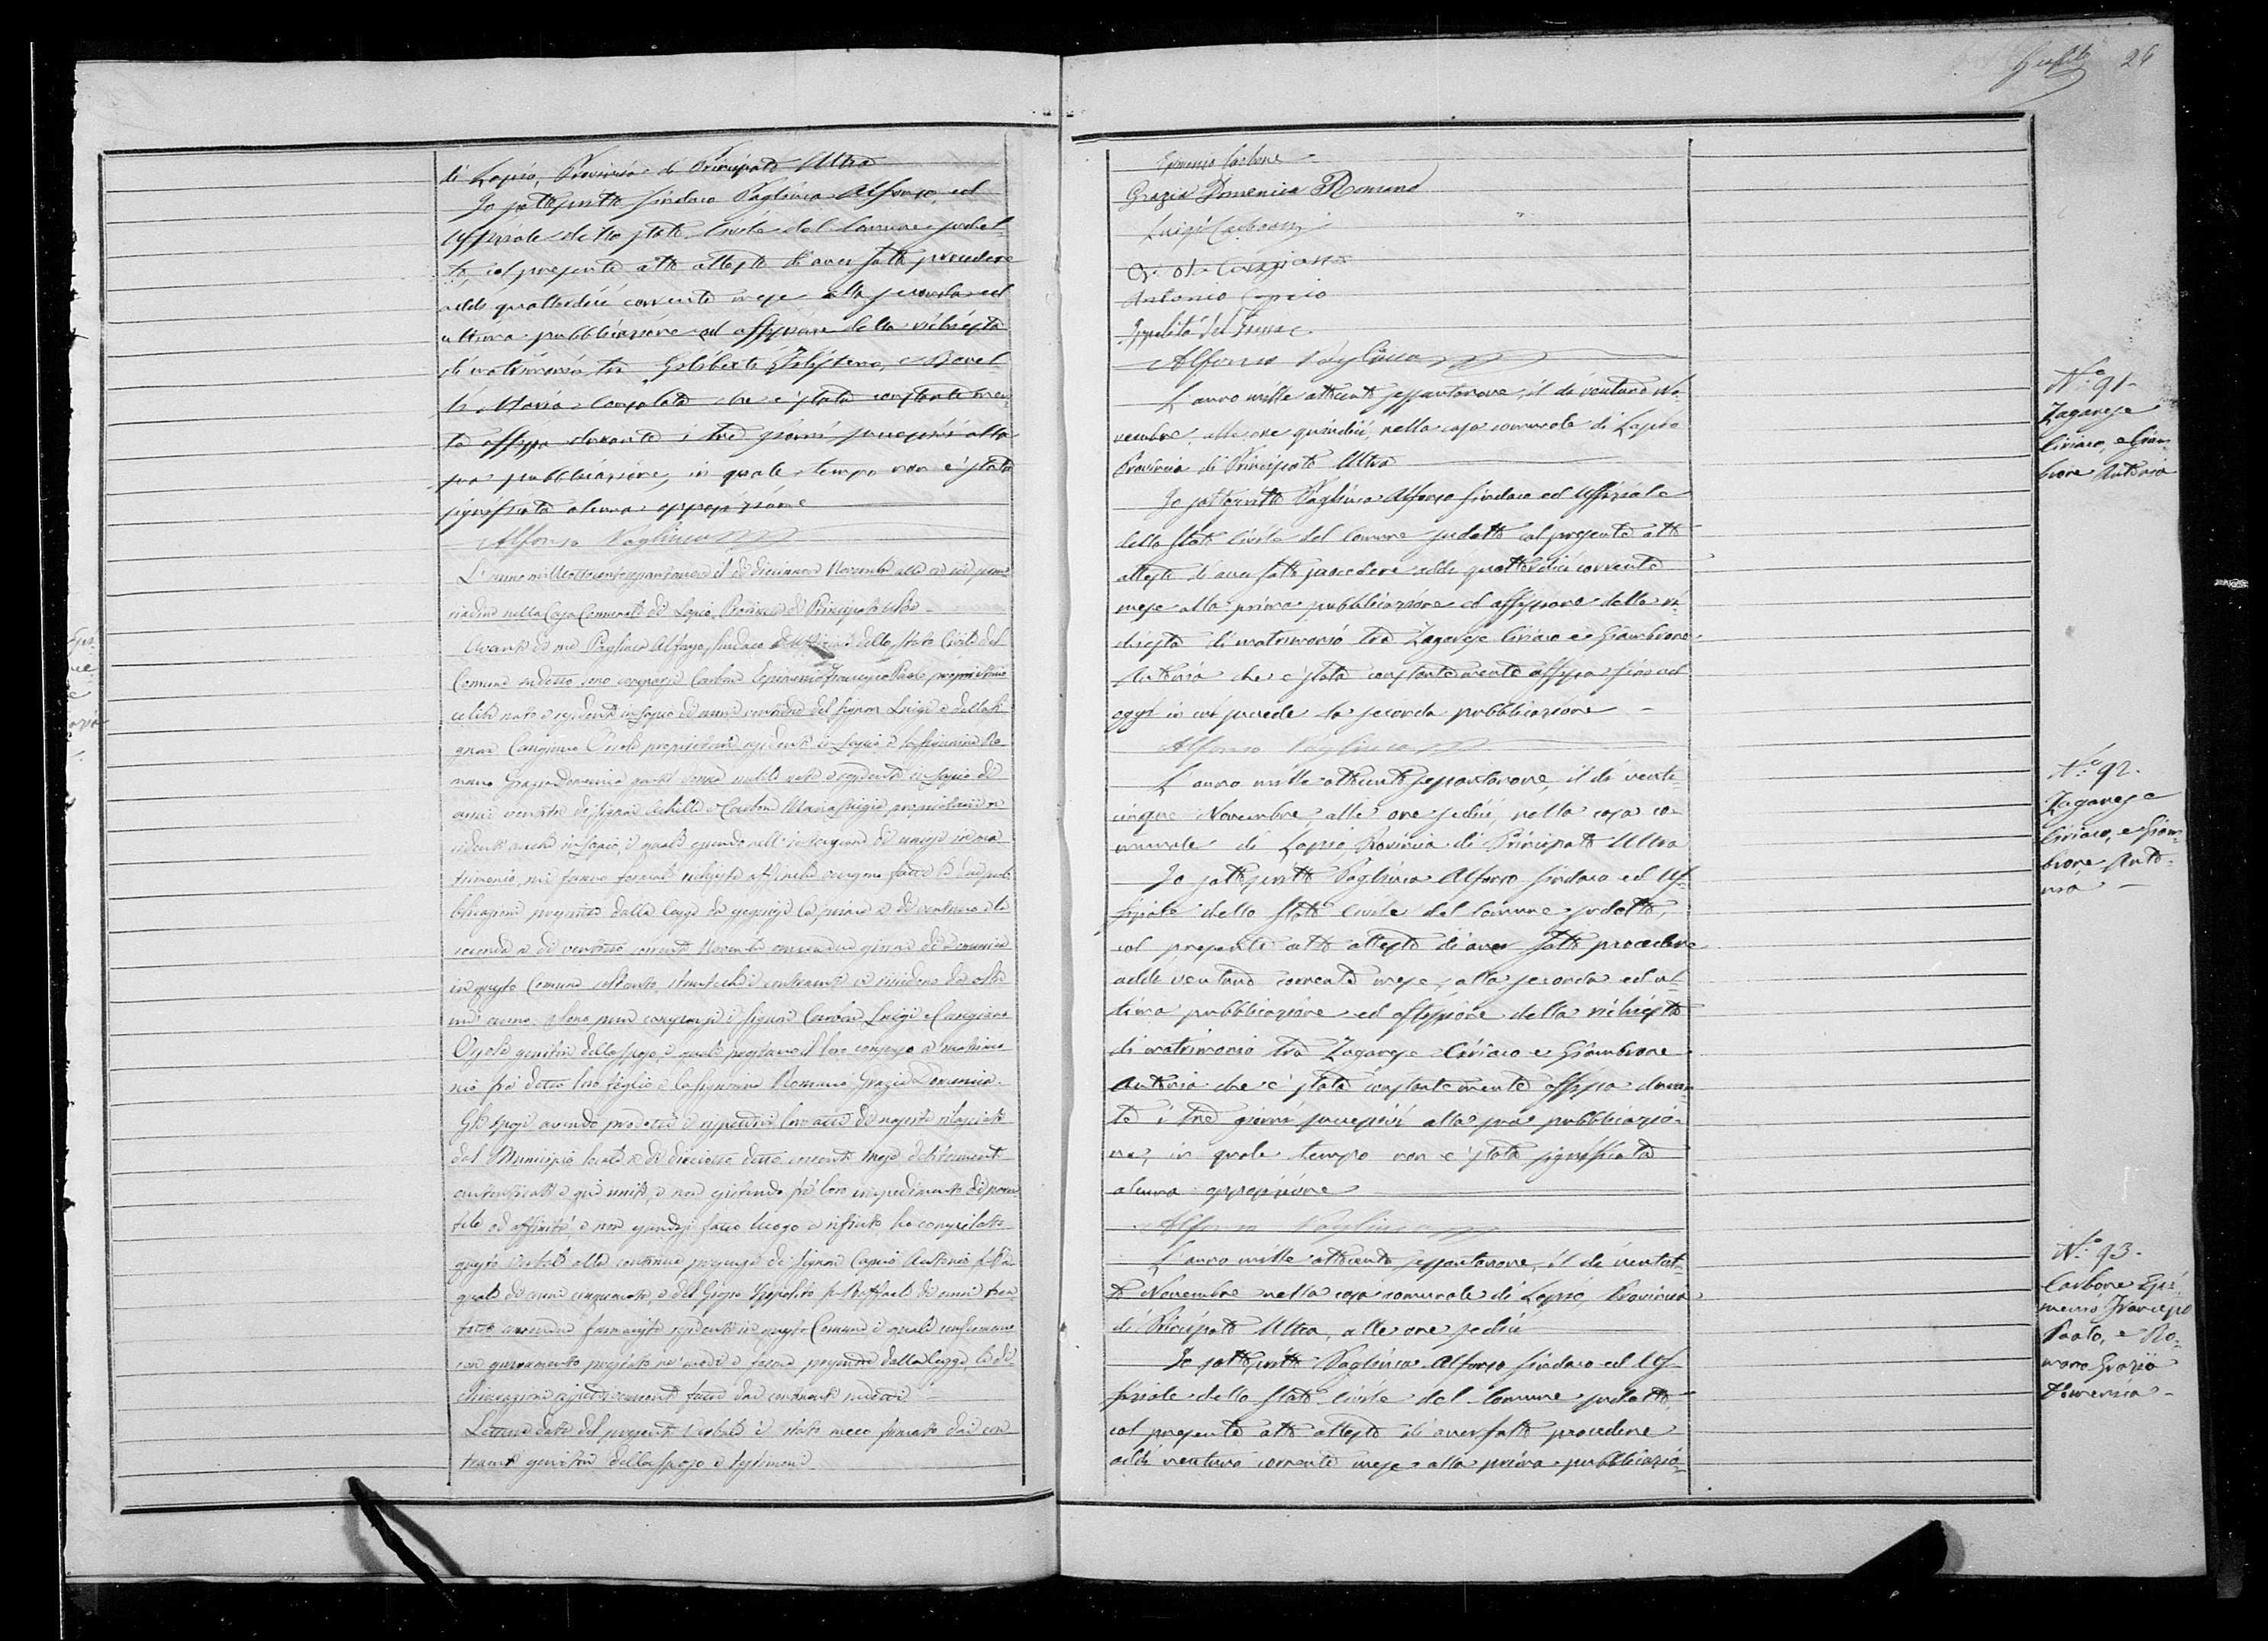 di Lapio, Provincia di Principato Ultra
Io sottoscritto Sindaco Pagliuca Alfonso, ed
Uffiziale dello stato Civile del Comune sudet-
to, col presente atto attesto di aver fatto procedere
addì quattordici corrente mese alla seconda ed
ultima pubblicazione ed affissione della richiesta
di matrimonio tra
Maria Consolata che è stata constantemen-
te affissa durante i tre giorni successivi alla
sua pubblicazione, in quale tempo non è stata
significata alcuna opposizione
Alfonso Pagliuca
L'anno milleottocentosessantanove il dì diciannove Novembre alle ore
nella Casa Comunale di Lapio, Provincia di Principato Ultra
Avanti di me Pagliuca Alfonso, Sindaco ed Uffiziale dello Stato Civile del
Comune sudetto sono comparsi Carbone Epimenio Francesco Paolo proprietario
celibe nato e residente in Lapio di anni del Signor Luigi e della Si-
gnora Cangiano proprietarii residenti in Lapio e la Signorina Ro-
mano Grazia Domenica nubile nata e residente in Lapio di
anni del Signor Achille e Carbone Maria proprietarii re-
sidenti anche in Lapio, i quali essendo nell'intenzione di unirsi in ma-
trimonio, mi fanno formale richiesta affinchè vengano fatte le due pub-
blicazioni prescritte dalla legge da eseguirsi la prima a dì ventuno e la
seconda a dì ventotto corrente Novembre giorni di domenica
in questo Comune soltanto, stantechè i contraenti vi risiedono da oltre
un anno. Sono pure comparsi i Signori Carbone Luigi e Cangiano
genitori dello sposo, i quali prestano il loro consenso al matrimo-
nio fra detto loro figlio e la Signorina Romano Grazia Domenica.
Gli sposi avendo prodotti i rispettivi loro atti di nascita rilasciati
dal Municipio locale a dì diciotto detto corrente mese debitamente
autenticati e qui uniti, e non esistendo fra loro impedimento di paren-
tela od affinità, e non essendosi fatto luogo a rifiuto, ho compilato
questo verbale alla continua presenza di Signori Capnio Antonio
di anni cinquanta, e del Grosso Ippolito fu Raffaele di anni tren-
totto farmacista residenti in questo Comune i quali confermano
con giuramento prestato ne' modi e forme prescritte dalla legge le di-
chiarazioni rispettivamente fatte dai contraenti sudetti.
Lettura data del presente verbale è stato meco firmato dai con-
traenti genitori dello sposo e testimoni

26
Epimenio Carbone
Grazia Domenica Romano
Luigi Carbone
Cangiano
Antonio Capnio
Ippolito del Grosso
Alfonso Pagliuca
L'anno mille ottocento sessantanove, il dì ventuno No-
vembre, alle ore quindici, nella casa comunale di Lapio
Provincia di Principato Ultra
Io sottoscritto Pagliuca Alfonso Sindaco ed Uffiziale
dello Stato Civile del Comune sudetto col presente atto
attesto di aver fatto procedere addì quattordici corrente
mese alla prima pubblicazione ed affissione della ri-
chiesta di matrimonio tra Zagarese Ciriaco e Giambrone
Antonia che è stata constantemente affissa fino ad
oggi in cui succede la seconda pubblicazione
Alfonso Pagliuca
L'anno mille ottocento sessantanove, il dì venti-
cinque Novembre, alle ore sedici, nella casa co-
munale di Lapio, Provincia di Principato Ultra
Io sottoscritto Pagliuca Alfonso Sindaco ed Uf-
fiziale dello Stato Civile del Comune sudetto,
col presente atto attesto di aver fatto procedere
addì ventuno corrente mese, alla seconda ed ul-
tima pubblicazione ed affissione della richiesta
di matrimonio tra Zagarese Ciriaco e Giambrone
Antonia che è stata constantemente affissa duran-
te i tre giorni successivi alla sua pubblicazio-
ne, in quale tempo non è stata significata
alcuna opposizione
Alfonso Pagliuca
L'anno mille ottocento sessantanove, il dì ventot-
to Novembre nella casa comunale di Lapio, Provincia
di Principato Ultra, alle ore sedici
Io sottoscritto Pagliuca Alfonso Sindaco ed Uf-
fiziale dello Stato Civile del Comune sudetto,
col presente atto attesto di aver fatto procedere
addì ventuno corrente mese alla prima pubblicazio-
N.° 91-
Zagarese
Ciriaco, e Giam-
brone Antonia
N.° 92.
Zagarese
Ciriaco, e Giam-
brone Anto-
nia
N.° 93.
Carbone Epi-
menio Francesco
Paolo, e Ro-
mano Grazia
Domenica